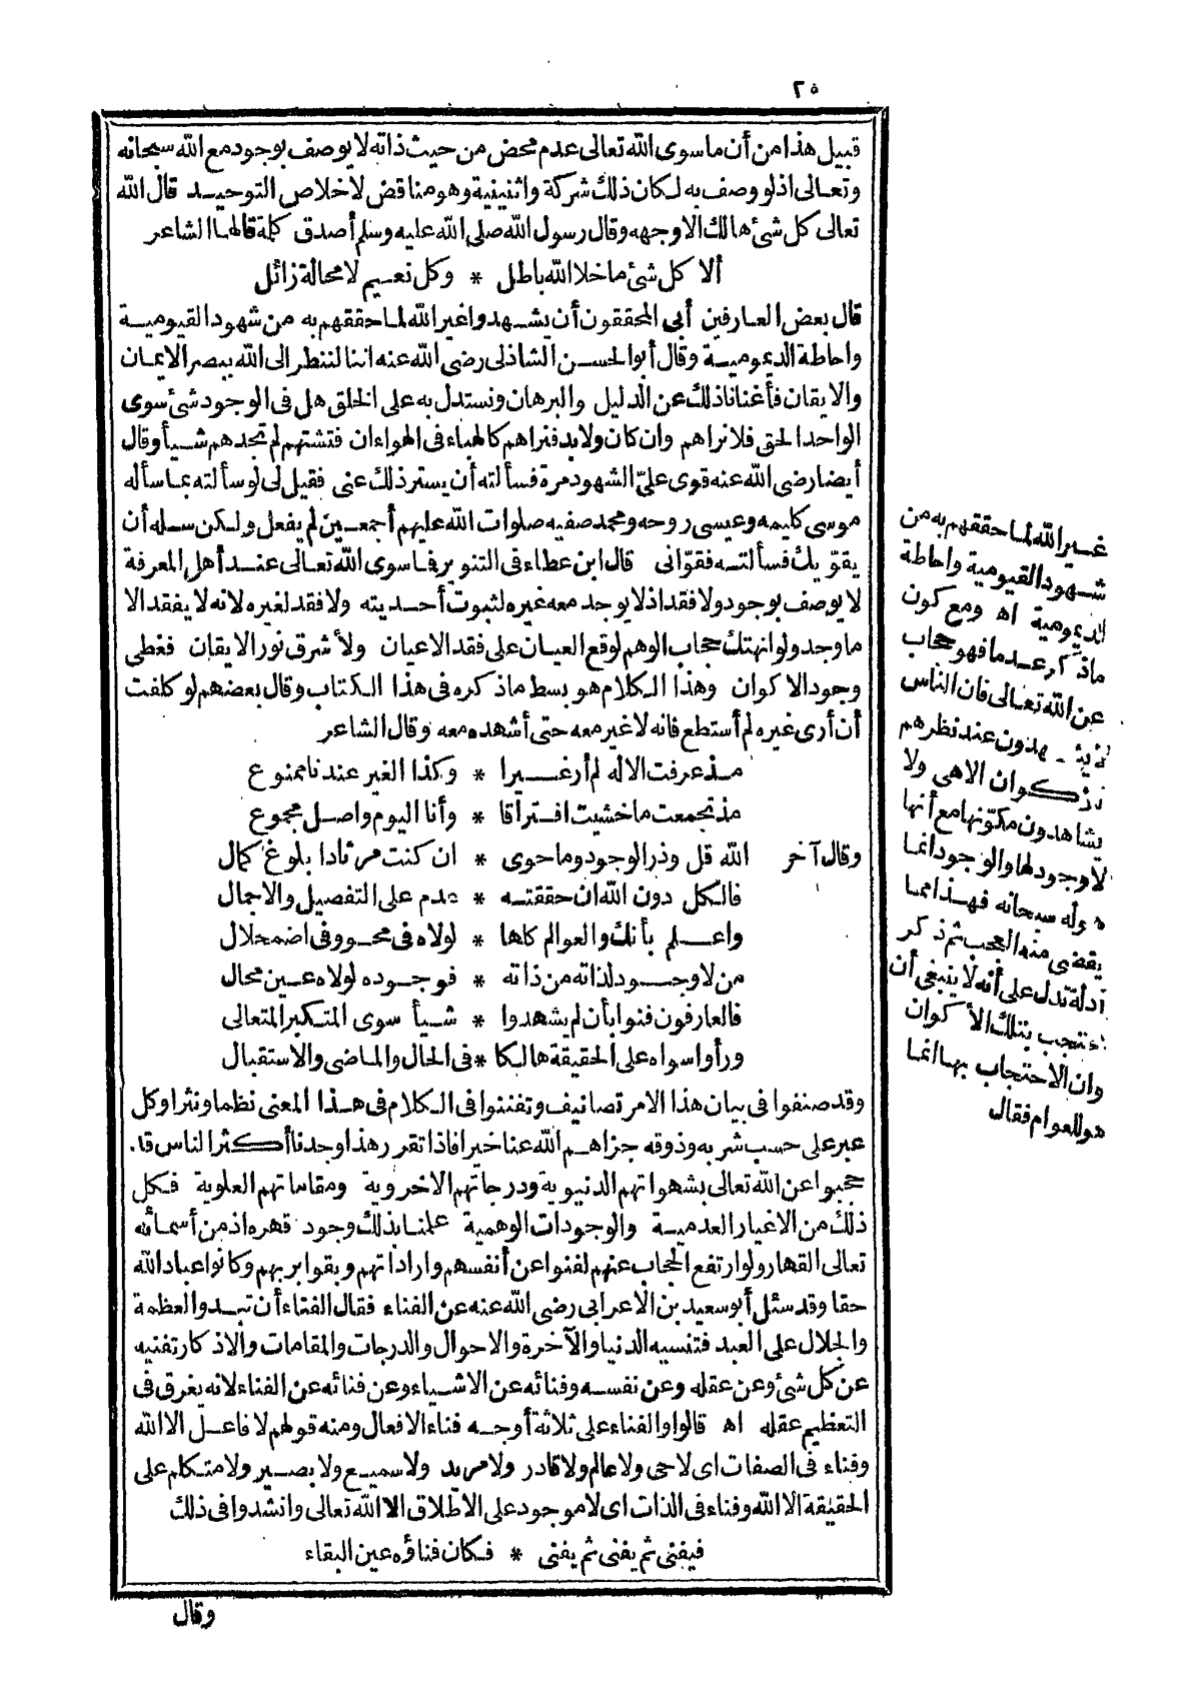 ٢٥
قبيل هذا من أن ما سوى الله تعالى عدم محض من حيث ذاته لا يوصف بوجود مع الله سبحانه
وتعالى اذ لو وصف به لكان ذلك شركة واثنينية وهو مناقض لاخلاص التوحيد قال الله
تعالى كل شئ هالك الا وجهه وقال رسول الله صلى الله عليه وسلم أصدق كلمة قالها الشاعر
ألا كل شئ ما خلا الله باطل * وكل نعيم لا محالة زائل
قال بعض العارفين أبى المحققون أن يشهدوا غير الله لما حققهم به من شهود القيومية
واحاطة الديمومية وقال أبو الحسن الشاذلى رضى الله عنه اننا لننظر الى الله ببصر الايمان
والايقان فأغنانا ذلك عن الدليل والبرهان ونستدل به على الخلق هل فى الوجود شئ سوى
الواحد الحق فلا نراهم وان كان ولا بد فنراهم كالهباء فى الهواء ان فتشتهم لم تجدهم شيأ وقال
أيضا رضى الله عنه قوى علىّ الشهود مرة فسألته أن يستر ذلك عنى فقيل لى لو سألته بما سأله
موسى كليمه وعيسى روحه ومحمد صفيه صلوات الله عليهم أجمعين لم يفعل ولكن سله أن
يقوّيك فسألته فقوّانى قال ابن عطاء فى التنوير فما سوى الله تعالى عند أهل المعرفة
لا يوصف بوجود ولا فقد اذ لا يوجد معه غيره لثبوت أحديته ولا فقد لغيره لانه لا يفقد الا
ما وجد ولو انهتك حجاب الوهم لوقع العيان على فقد الاعيان ولأشرق نور الايقان فغطى
وجود الاكوان وهذا الكلام هو بسط ماذكره فى هذا الكتاب وقال بعضهم لو كلفت
أن أرى غيره لم أستطع فانه لا غير معه حتى أشهده معه وقال الشاعر
مذ عرفت الاله لم أر غيرا * وكذا الغير عندنا ممنوع
مذ تجمعت ما خشيت افتراقا * وأنا اليوم واصل مجموع
وقال آخر الله قل وذر الوجود وما حوى * ان كنت مرتادا بلوغ كمال
فالكل دون الله ان حققته * عدم على التفصيل والاجمال
واعلم بأنك والعوالم كلها * لولاه فى محو وفى اضمحلال
من لا وجود لذاته من ذاته * فوجوده لولاه عين محال
فالعارفون فنوا بأن لم يشهدوا * شيأ سوى المتكبر المتعالى
ورأوا سواه على الحقيقة هالكا * فى الحال والماضى والاستقبال
وقد صنفوا فى بيان هذا الامر تصانيف وتفننوا فى الكلام فى هذا المعنى نظما ونثرا وكل
عبر على حسب شربه وذوقه جزاهم الله عنا خيرا فاذا تقرر هذا وجدنا أكثر الناس قد
حجبوا عن الله تعالى بشهواتهم الدنيوية ودرجاتهم الاخروية ومقاماتهم العلوية فكل
ذلك من الاغيار العدمية والوجودات الوهمية علمنا بذلك وجود قهره اذ من أسمائه
تعالى القهار ولو ارتفع الحجاب عنهم لفنوا عن أنفسهم واراداتهم وبقوا بربهم وكانوا عباد الله
حقا وقد سئل أبو سعيد بن الاعرابى رضى الله عنه عن الفناء فقال الفناء أن تبدو العظمة
والجلال على العبد فتنسيه الدنيا والآخرة والاحوال والدرجات والمقامات والاذكار تفنيه
عن كل شئ وعن عقله وعن نفسه وفنائه عن الاشياء وعن فنائه عن الفناء لانه يغرق فى
التعظيم عقله اه قالوا والفناء على ثلاثة أوجه فناء الافعال ومنه قولهم لا فاعل الا الله
وفناء فى الصفات اى لا حى ولا عالم ولا قادر ولا مريد ولا سميع ولا بصير ولا متكلم على
الحقيقة الا الله وفناء فى الذات اى لا موجود على الاطلاق الا الله تعالى وانشدوا فى ذلك
فيفنى ثم يفنى ثم يفنى * فكان فناؤه عين البقاء
وقال
غير الله لما حققهم به من
شهود القيومية واحاطة
الديمومية اه ومع كون
ماذكر عدما فهو حجاب
عن الله تعالى فان الناس
يشهدون عند نظرهم
للاكوان الا هى ولا
يشاهدون مكوّنها مع أنها
لا وجود لها والوجود انما
هو له سبحانه فهذا مما
يقضى منه العجب ثم ذكر
أدلة تدل على أنه لا ينبغى أن
تحتجب بتلك الأكوان
وان الاحتجاب بها انما
هو للعوام فقال